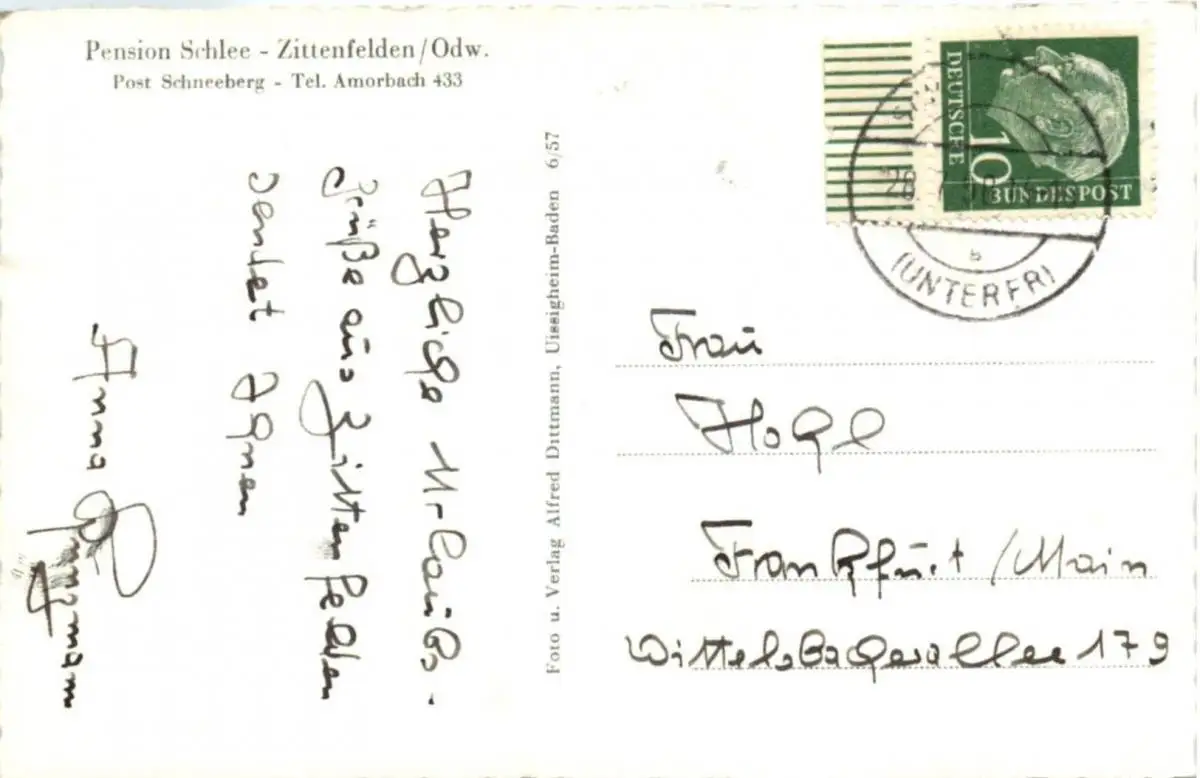 Pension Schlee - Zittenfelden/Odw.
Post Schneeberg - Tel. Amorbach 433
Herzliche Urlaubs-
Grüße aus Zittenfelden
sendet Ihnen
Anna
Foto u. Verlag Alfred Dittmann, Uissigheim-Baden 6/57
DEUTSCHE
10
BUNDESPOST
(UNTERFR)
Frau
Hohl
Frankfurt/Main
Wittelsbacherallee 179